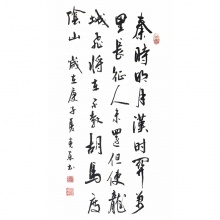 秦時明月漢時關萬
里長征人未還但使龍
城飛將在不教胡馬度
陰山 歲在庚子